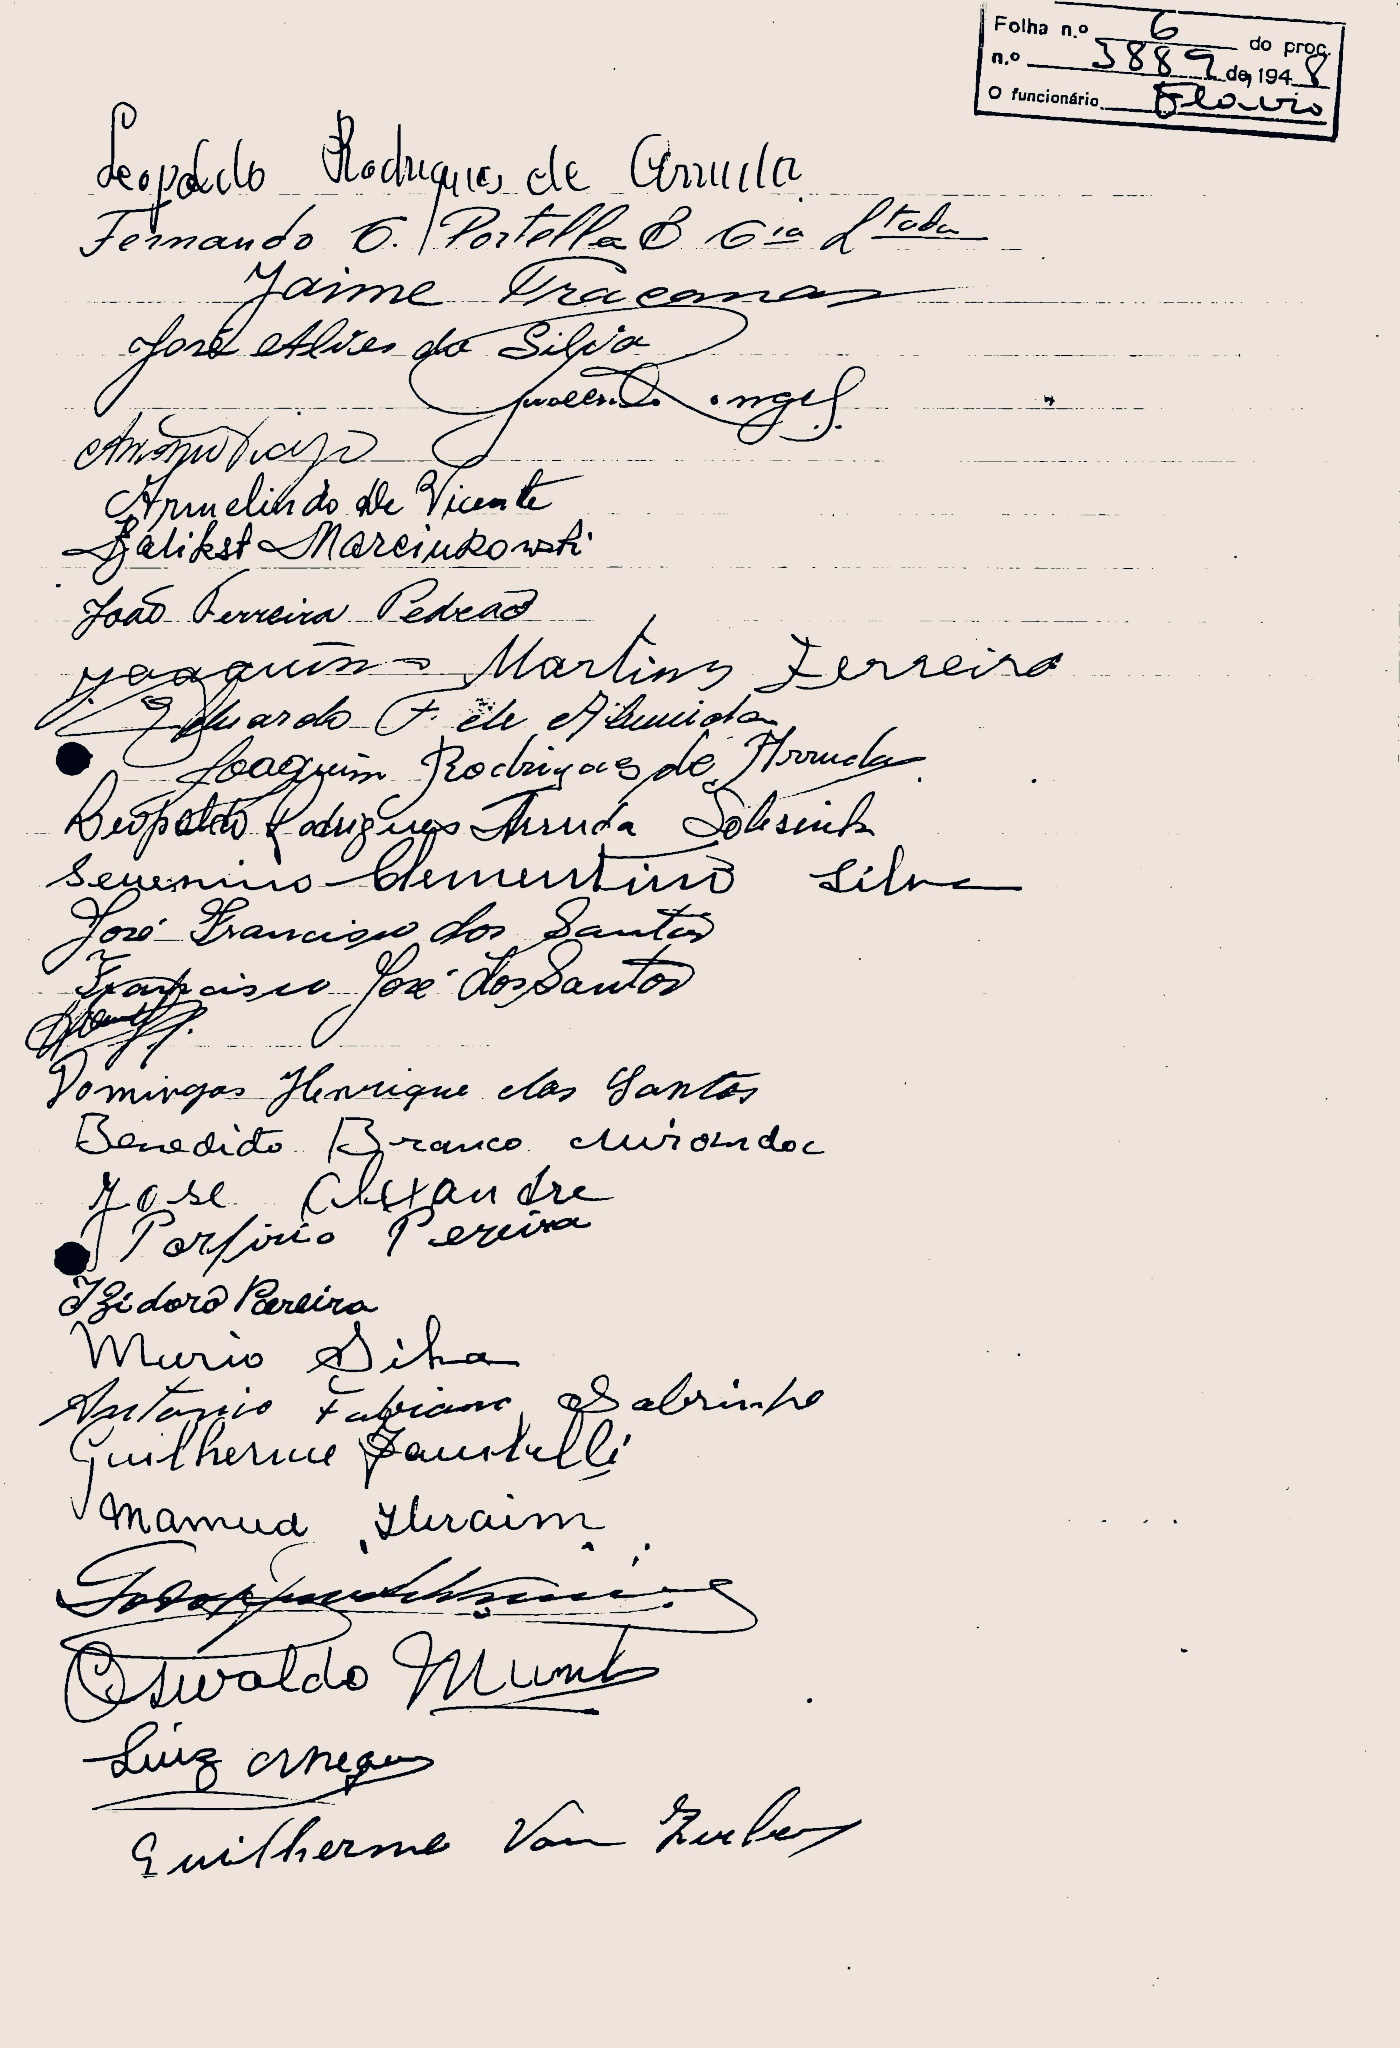 Folha n.º 6 do proc.
n.º 3889 de, 1948
O funcionário Flavio
Leopoldo Rodrigues de Arruda
Fernando C. Portella & Cia Ltada
Jaime Fracaman
José Alves da Silva
Armelindo De Vicente
Kalikst Marciukowski
João Ferreira Pedrão
Joaquim Martins Ferreira
Eduardo F. de Almeida
Joaquim Rodrigues de Arruda
Leopoldo Rodrigues Arruda
Severino Clementino Silva
José Francisco dos Santos
Francisco José dos Santos
Domingos Henrique dos Santos
Benedito Branco Miranda
José Alexandre
Porfirio Pereira
Izidoro Pereira
Murio Silva
Antonio Fabiano Sabrinho
Guilherme
Mamud Ibraim
Oswaldo
Luiz
Guilherme Van